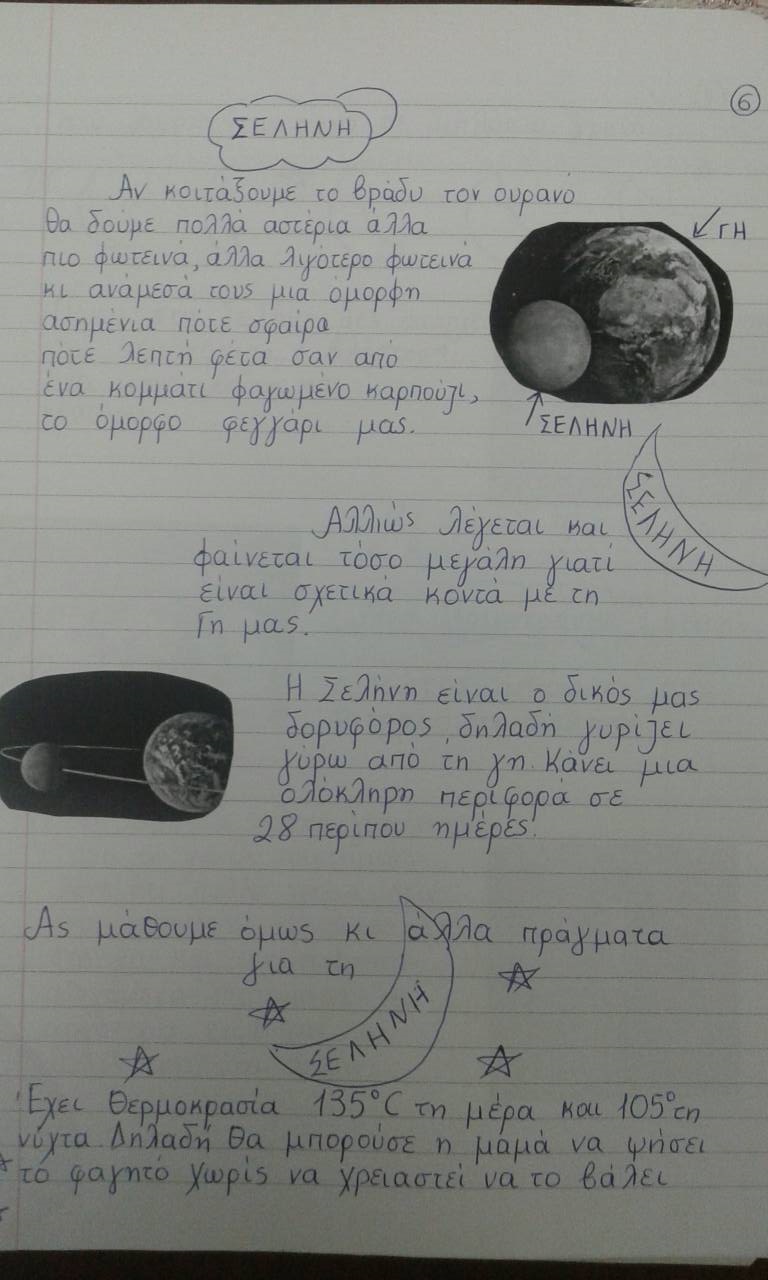 6
ΣΕΛΗΝΗ
Αν κοιτάξουμε το βράδυ τον ουρανό
θα δούμε πολλά αστέρια άλλα
πιο φωτεινά, άλλα λιγότερο φωτεινά
κι ανάμεσά τους μια όμορφη
ασημένια πότε σφαίρα
πότε λεπτή φέτα σαν από
ένα κομμάτι φαγωμένο καρπούζι,
το όμορφο φεγγάρι μας.
ΓΗ
ΣΕΛΗΝΗ
ΣΕΛΗΝΗ
Αλλιώς λέγεται και
φαίνεται τόσο μεγάλη γιατί
είναι σχετικά κοντά με τη
Γη μας.
Η Σελήνη είναι ο δικός μας
δορυφόρος, δηλαδή γυρίζει
γύρω από τη γη. Κάνει μια
ολόκληρη περιφορά σε
28 περίπου ημέρες.
Ας μάθουμε όμως κι άλλα πράγματα
για τη
ΣΕΛΗΝΗ
Έχει θερμοκρασία 135°C τη μέρα και 105° τη
νύχτα Δηλαδή θα μπορούσε η μαμά να ψήσει
το φαγητό χωρίς να χρειαστεί να το βάλει